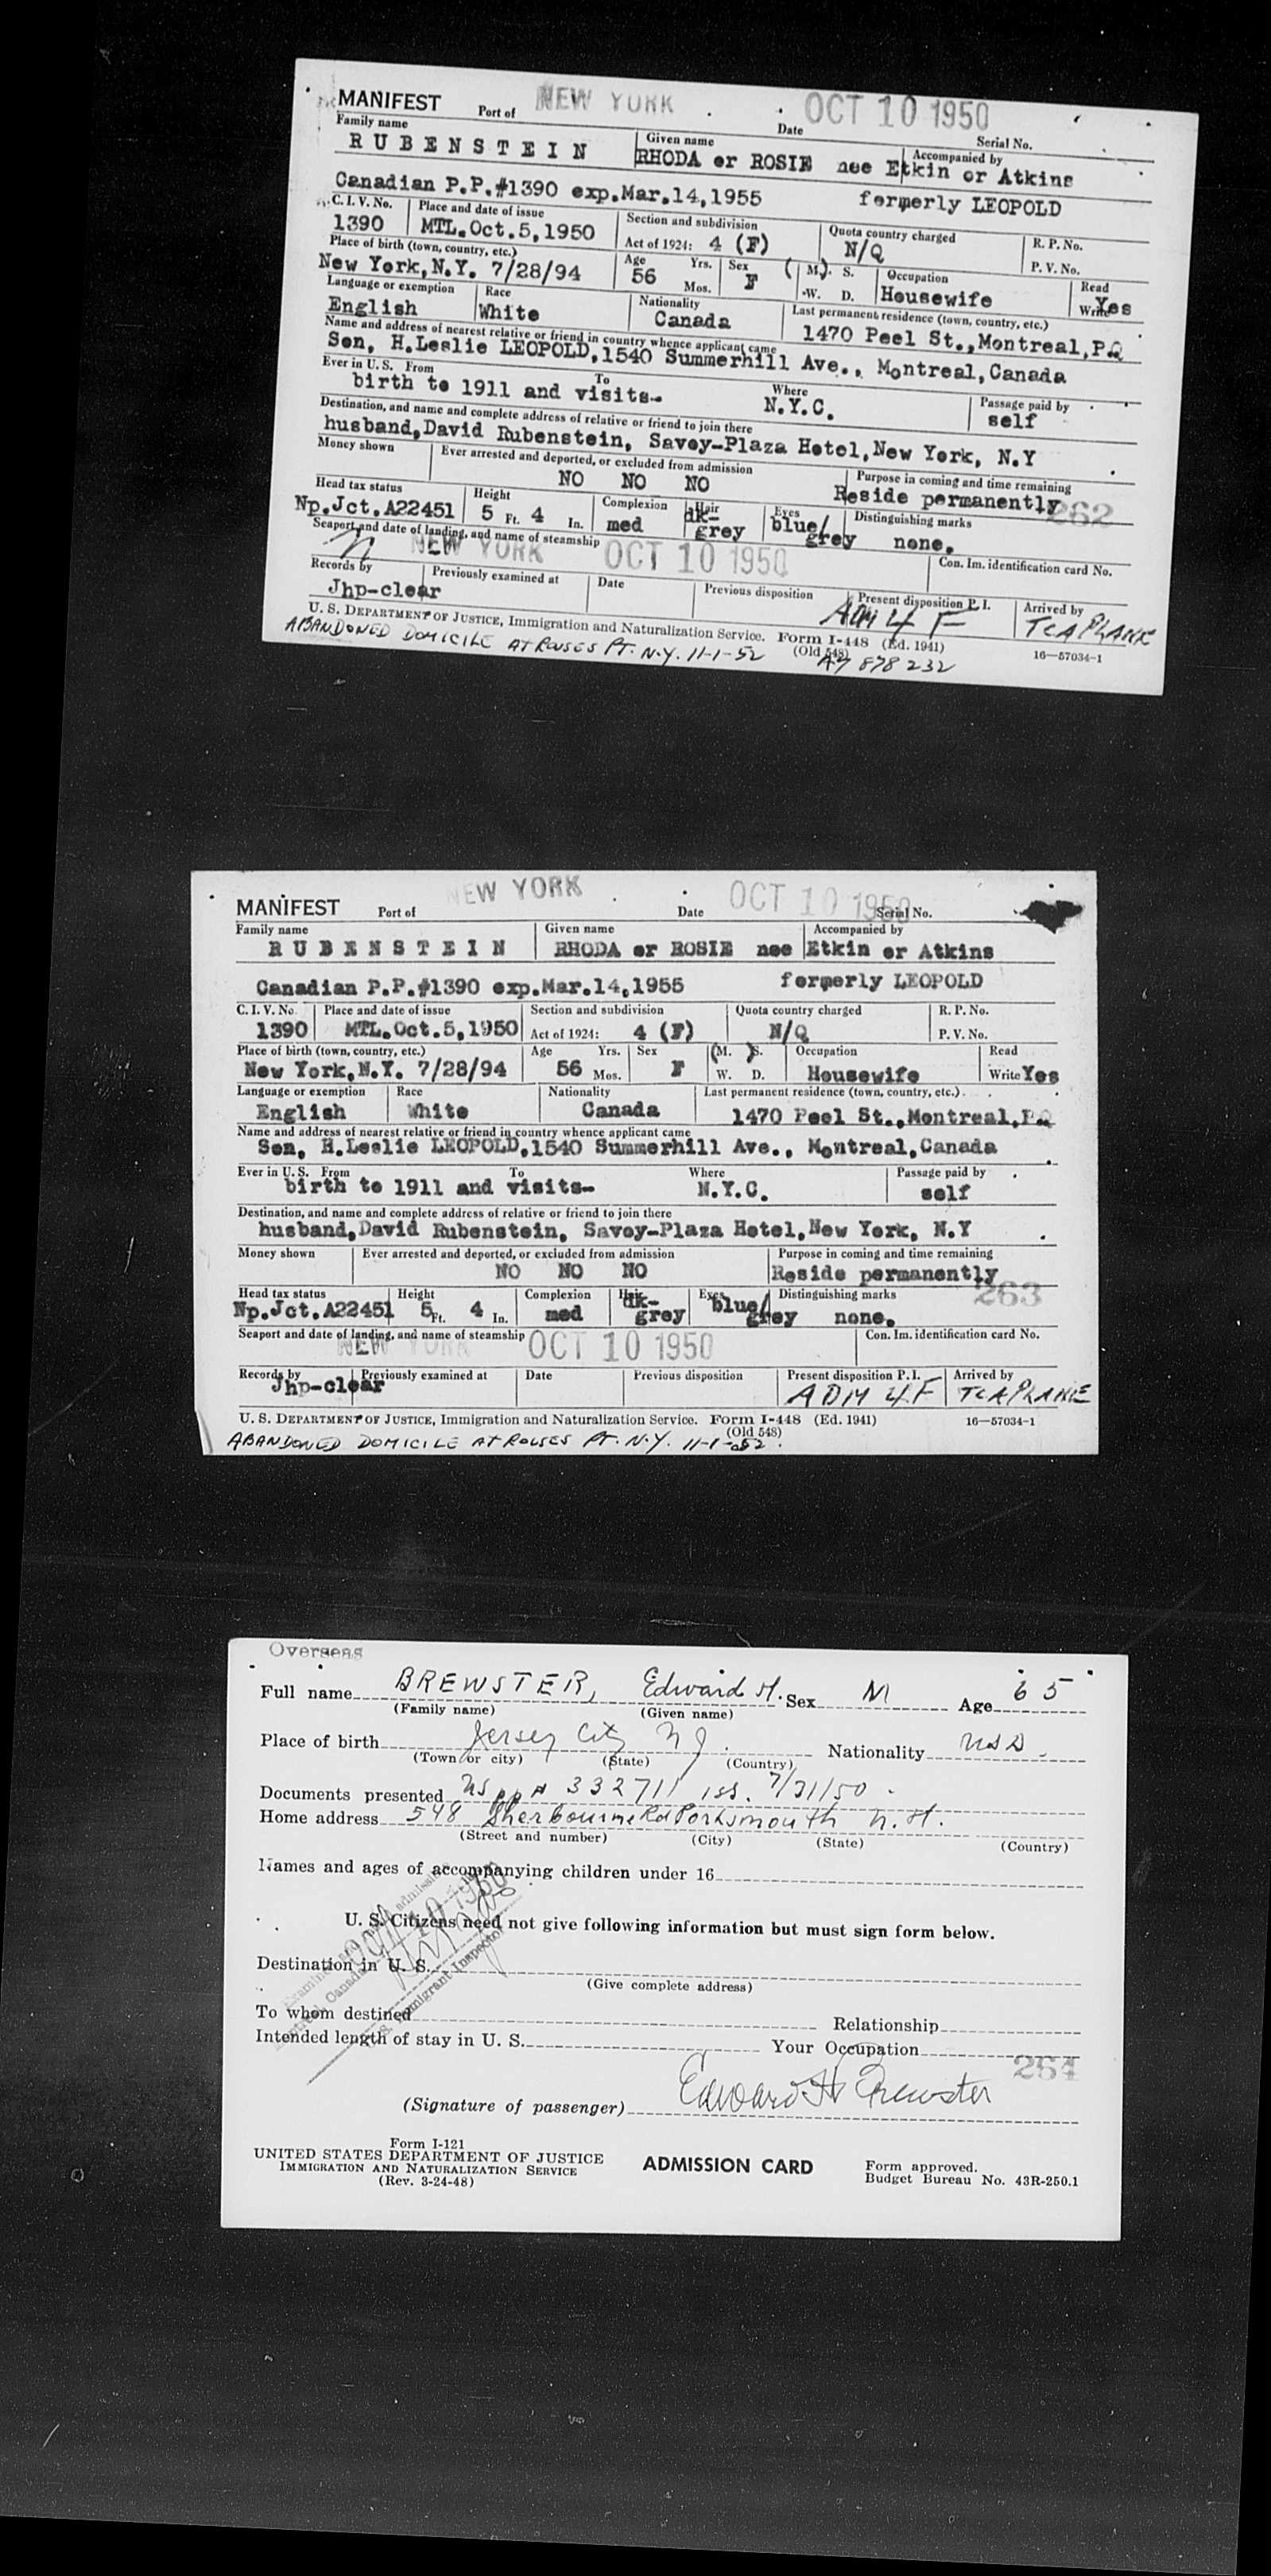 MANIFEST Port of NEW YORK Date OCT 10 1950 Serial No.
Family name Given name Accompanied by
RUBENSTEIN RHODA or ROSIE nee Etkin or Atkins
Canadian P.P.#1390 exp.Mar.14,1955 formerly LEOPOLD
C. I. V. No. Place and date of issue Section and subdivision Quota country charged R. P. No.
1390 MTL.Oct.5,1950 Act of 1924: 4 (F) N/Q P. V. No.
Place of birth (town, country, etc.) Age Yrs. Sex (M.) S. Occupation Read
New York,N.Y. 7/28/94 56 Mos. F W. D. Housewife Write Yes
Language or exemption Race Nationality Last permanent residence (town, country, etc.)
English White Canada 1470 Peel St.,Montreal,P.Q
Name and address of nearest relative or friend in country whence applicant came
Son, H.Leslie LEOPOLD,1540 Summerhill Ave., Montreal,Canada
Ever in U. S. From To Where Passage paid by
birth to 1911 and visits- N.Y.C. self
Destination, and name and complete address of relative or friend to join there
husband,David Rubenstein, Savoy-Plaza Hotel,New York, N.Y
Money shown Ever arrested and deported, or excluded from admission Purpose in coming and time remaining
NO NO NO Reside permanently
262
Head tax status Height Complexion Hair Eyes Distinguishing marks
Np.Jct.A22451 5 Ft. 4 In. med dk-grey blue/grey none.
Seaport and date of landing, and name of steamship Con. Im. identification card No.
NEW YORK OCT 10 1950
Records by Previously examined at Date Previous disposition Present disposition P. I. Arrived by
Jhp-clear ADM 4 F TCA PLANE
U. S. DEPARTMENT OF JUSTICE, Immigration and Naturalization Service. Form I-448 (Ed. 1941) 16—57034-1
(Old 548)
ABANDONED DOMICILE AT ROUSES PT. N.Y. 11-1-52 A7 878 232
MANIFEST Port of NEW YORK Date OCT 10 1950 Serial No.
Family name Given name Accompanied by
RUBENSTEIN RHODA or ROSIE nee Etkin or Atkins
Canadian P.P.#1390 exp.Mar.14,1955 formerly LEOPOLD
C. I. V. No. Place and date of issue Section and subdivision Quota country charged R. P. No.
1390 MTL.Oct.5,1950 Act of 1924: 4 (F) N/Q P. V. No.
Place of birth (town, country, etc.) Age Yrs. Sex (M.) S. Occupation Read
New York,N.Y. 7/28/94 56 Mos. F W. D. Housewife Write Yes
Language or exemption Race Nationality Last permanent residence (town, country, etc.)
English White Canada 1470 Peel St.,Montreal,P.Q
Name and address of nearest relative or friend in country whence applicant came
Son, H.Leslie LEOPOLD,1540 Summerhill Ave., Montreal,Canada
Ever in U. S. From To Where Passage paid by
birth to 1911 and visits- N.Y.C. self
Destination, and name and complete address of relative or friend to join there
husband,David Rubenstein, Savoy-Plaza Hotel,New York, N.Y
Money shown Ever arrested and deported, or excluded from admission Purpose in coming and time remaining
NO NO NO Reside permanently
263
Head tax status Height Complexion Hair Eyes Distinguishing marks
Np.Jct.A22451 5 Ft. 4 In. med dk-grey blue/grey none.
Seaport and date of landing, and name of steamship Con. Im. identification card No.
NEW YORK OCT 10 1950
Records by Previously examined at Date Previous disposition Present disposition P. I. Arrived by
Jhp-clear ADM 4F TCA PLANE
U. S. DEPARTMENT OF JUSTICE, Immigration and Naturalization Service. Form I-448 (Ed. 1941) 16—57034-1
(Old 548)
ABANDONED DOMICILE AT ROUSES PT. N.Y. 11-1-52.
Overseas
Full name BREWSTER, Edward H. Sex M Age 65
(Family name) (Given name)
Place of birth Jersey City NJ. Nationality USA
(Town or city) (State) (Country)
Documents presented US pp # 332711 iss. 7/31/50
Home address 548 Sherbourne Rd Portsmouth N.H.
(Street and number) (City) (State) (Country)
Names and ages of accompanying children under 16
U. S. Citizens need not give following information but must sign form below.
Destination in U. S.
(Give complete address)
OCT 10 1950
U.S. Immigrant Inspector
To whom destined Relationship
Intended length of stay in U. S. Your Occupation
264
(Signature of passenger) Edward H Brewster
Form I-121
UNITED STATES DEPARTMENT OF JUSTICE
IMMIGRATION AND NATURALIZATION SERVICE
(Rev. 3-24-48)
ADMISSION CARD
Form approved.
Budget Bureau No. 43R-250.1